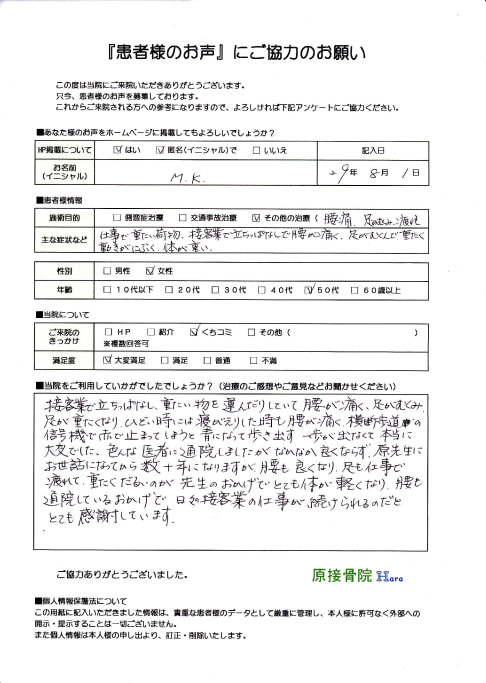 『患者様のお声』にご協力のお願い
この度は当院にご来院いただきありがとうございます。
只今、患者様のお声を募集しております。
これからご来院される方への参考になりますので、よろしければ下記アンケートにご協力ください。
■あなた様のお声をホームページに掲載してもよろしいでしょうか？
HP掲載について ☑ はい ☑ 匿名（イニシャル）で □ いいえ 記入日
お名前
（イニシャル） M.K. 29年 8月 1日
■患者様情報
施術目的 □ 側弯症治療 □ 交通事故治療 ☑ その他の治療（ 腰痛、足のむくみ、疲れ
主な症状など 仕事で重たい荷物、接客業で立ちっぱなしで腰が痛く、足がむくんで重たく
動きがにぶく、体が重い。
性別 □ 男性 ☑ 女性
年齢 □ １０代以下 □ ２０代 □ ３０代 □ ４０代 ☑ ５０代 □ ６０歳以上
■当院について
ご来院の
きっかけ □ ＨＰ □ 紹介 ☑ くちコミ □ その他（ ）
※複数回答可
満足度 ☑ 大変満足 □ 満足 □ 普通 □ 不満
■当院をご利用していかがでしたでしょうか？（治療のご感想やご意見などお聞かせください）
接客業で立ちっぱなし、重たい物を運んだりしていて腰が痛く、足がむくみ、
足が重たくなり、ひどい時には寝がえりした時も腰が痛く、横断歩道の
信号機で赤で止まってしまうと青になって歩き出す一歩が出なくて本当に
大変でした、色んな医者に通院しましたがなかなか良くならず、原先生に
お世話になってから数十年になりますが、腰も良くなり、足も仕事で
疲れて、重たくだるいのが先生のおかげでとても体が軽くなり、腰も
通院しているおかげで日々接客業の仕事が続けられるのだと
とても感謝しています。
ご協力ありがとうございました。
原接骨院 Hara
■個人情報保護法について
この用紙に記入いただきました情報は、貴重な患者様のデータとして厳重に管理し、本人様に許可なく外部への
開示・提示することは一切ございません。
また個人情報は本人様の申し出より、訂正・削除いたします。